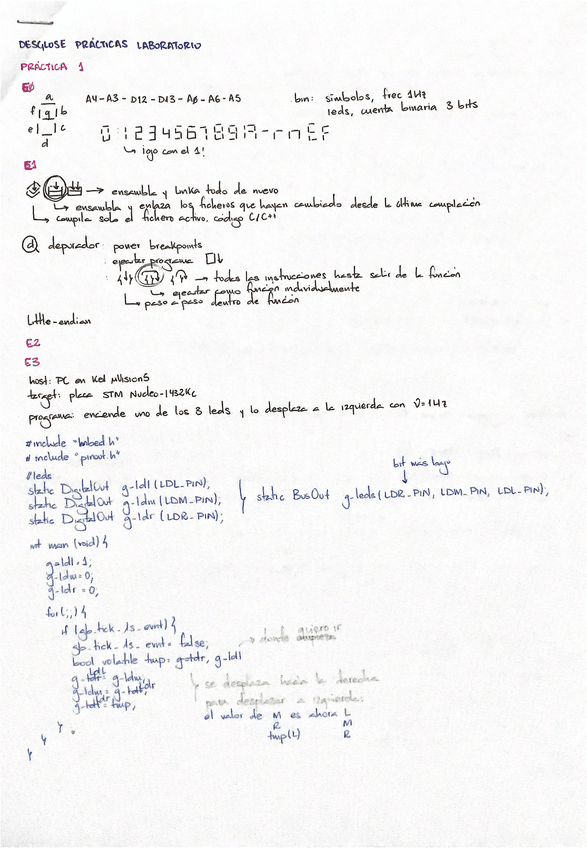 DESGLOSE PRÁCTICAS LABORATORIO
PRÁCTICA 1
E0
a
f g b
e c
d
A4-A3-D12-D13-A0-A6-A5
bin: símbolos, frec 1Hz
leds, cuenta binaria 3 bits
0 1 2 3 4 5 6 7 8 9 A - r n E F
↳ igo con el 1!
E1
→ ensambla y linka todo de nuevo
↳ ensambla y enlaza los ficheros que hayan cambiado desde la última compilación
↳ compila solo el fichero activo, código C/C++
d depurador: poner breakpoints
: ejecutar programa
: → todas las instrucciones hasta salir de la función
↳ ejecutar como función individualmente
↳ paso a paso dentro de función
Little-endian
E2
E3
host: PC en Keil µVision5
target: placa STM Nucleo-l432Kc
programa: enciende uno de los 3 leds y lo desplaza a la izquierda con ν=1Hz
#include "mbed.h"
#include "pinout.h"
//leds
static DigitalOut g-ldl (LDL-PIN);
static DigitalOut g-ldm (LDM-PIN);
static DigitalOut g-ldr (LDR-PIN);
bit más bajo
static BusOut g-leds (LDR-PIN, LDM-PIN, LDL-PIN);
int main (void) {
g-ldl=1;
g-ldm=0;
g-ldr=0;
for(;;) {
if (gb-tick-1s-evnt) {
gb-tick-1s-evnt= false;
bool volatile tmp= g-ldr, g-ldl
→ donde quiero ir
g-ldl= g-ldm;
g-ldm= g-ldr
g-ldr= tmp;
se desplaza hacia la derecha
para desplazar a izquierda:
el valor de M es ahora L
R M
tmp(L) R
}
}
}